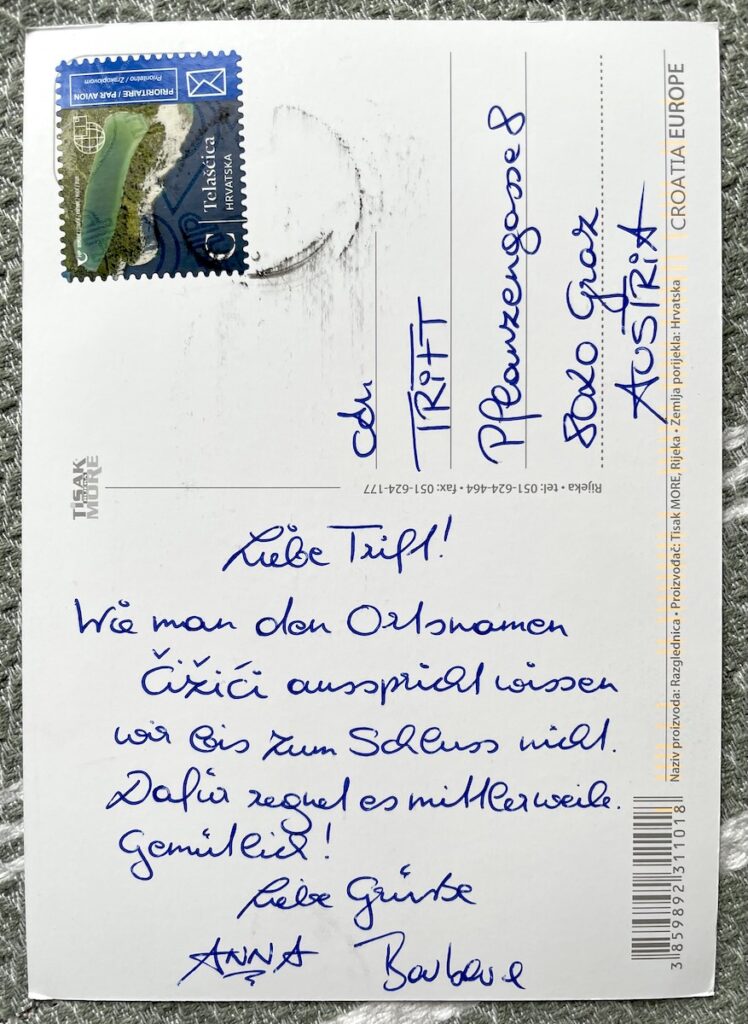 PRIORITAIRE / PAR AVION
Prioritetno / Zrakoplovom
C Telašćica
HRVATSKA
TRiFT
Pflanzengasse 8
8020 Graz
AUSTRIA
CROATIA EUROPE
TISAK
MORE
Rijeka • tel: 051-624-464 • fax: 051-624-177
Liebe Trift!
Wie man den Ortsnamen
Čižići ausspricht wissen
wir bis zum Schluss nicht.
Dafür regnet es mittlerweile.
Gemütlich!
Liebe Grüsse
ANNA Barbara
Naziv proizvoda: Razglednica • Proizvođač: Tisak MORE, Rijeka • Zemlja porijekla: Hrvatska
3 859892 311018